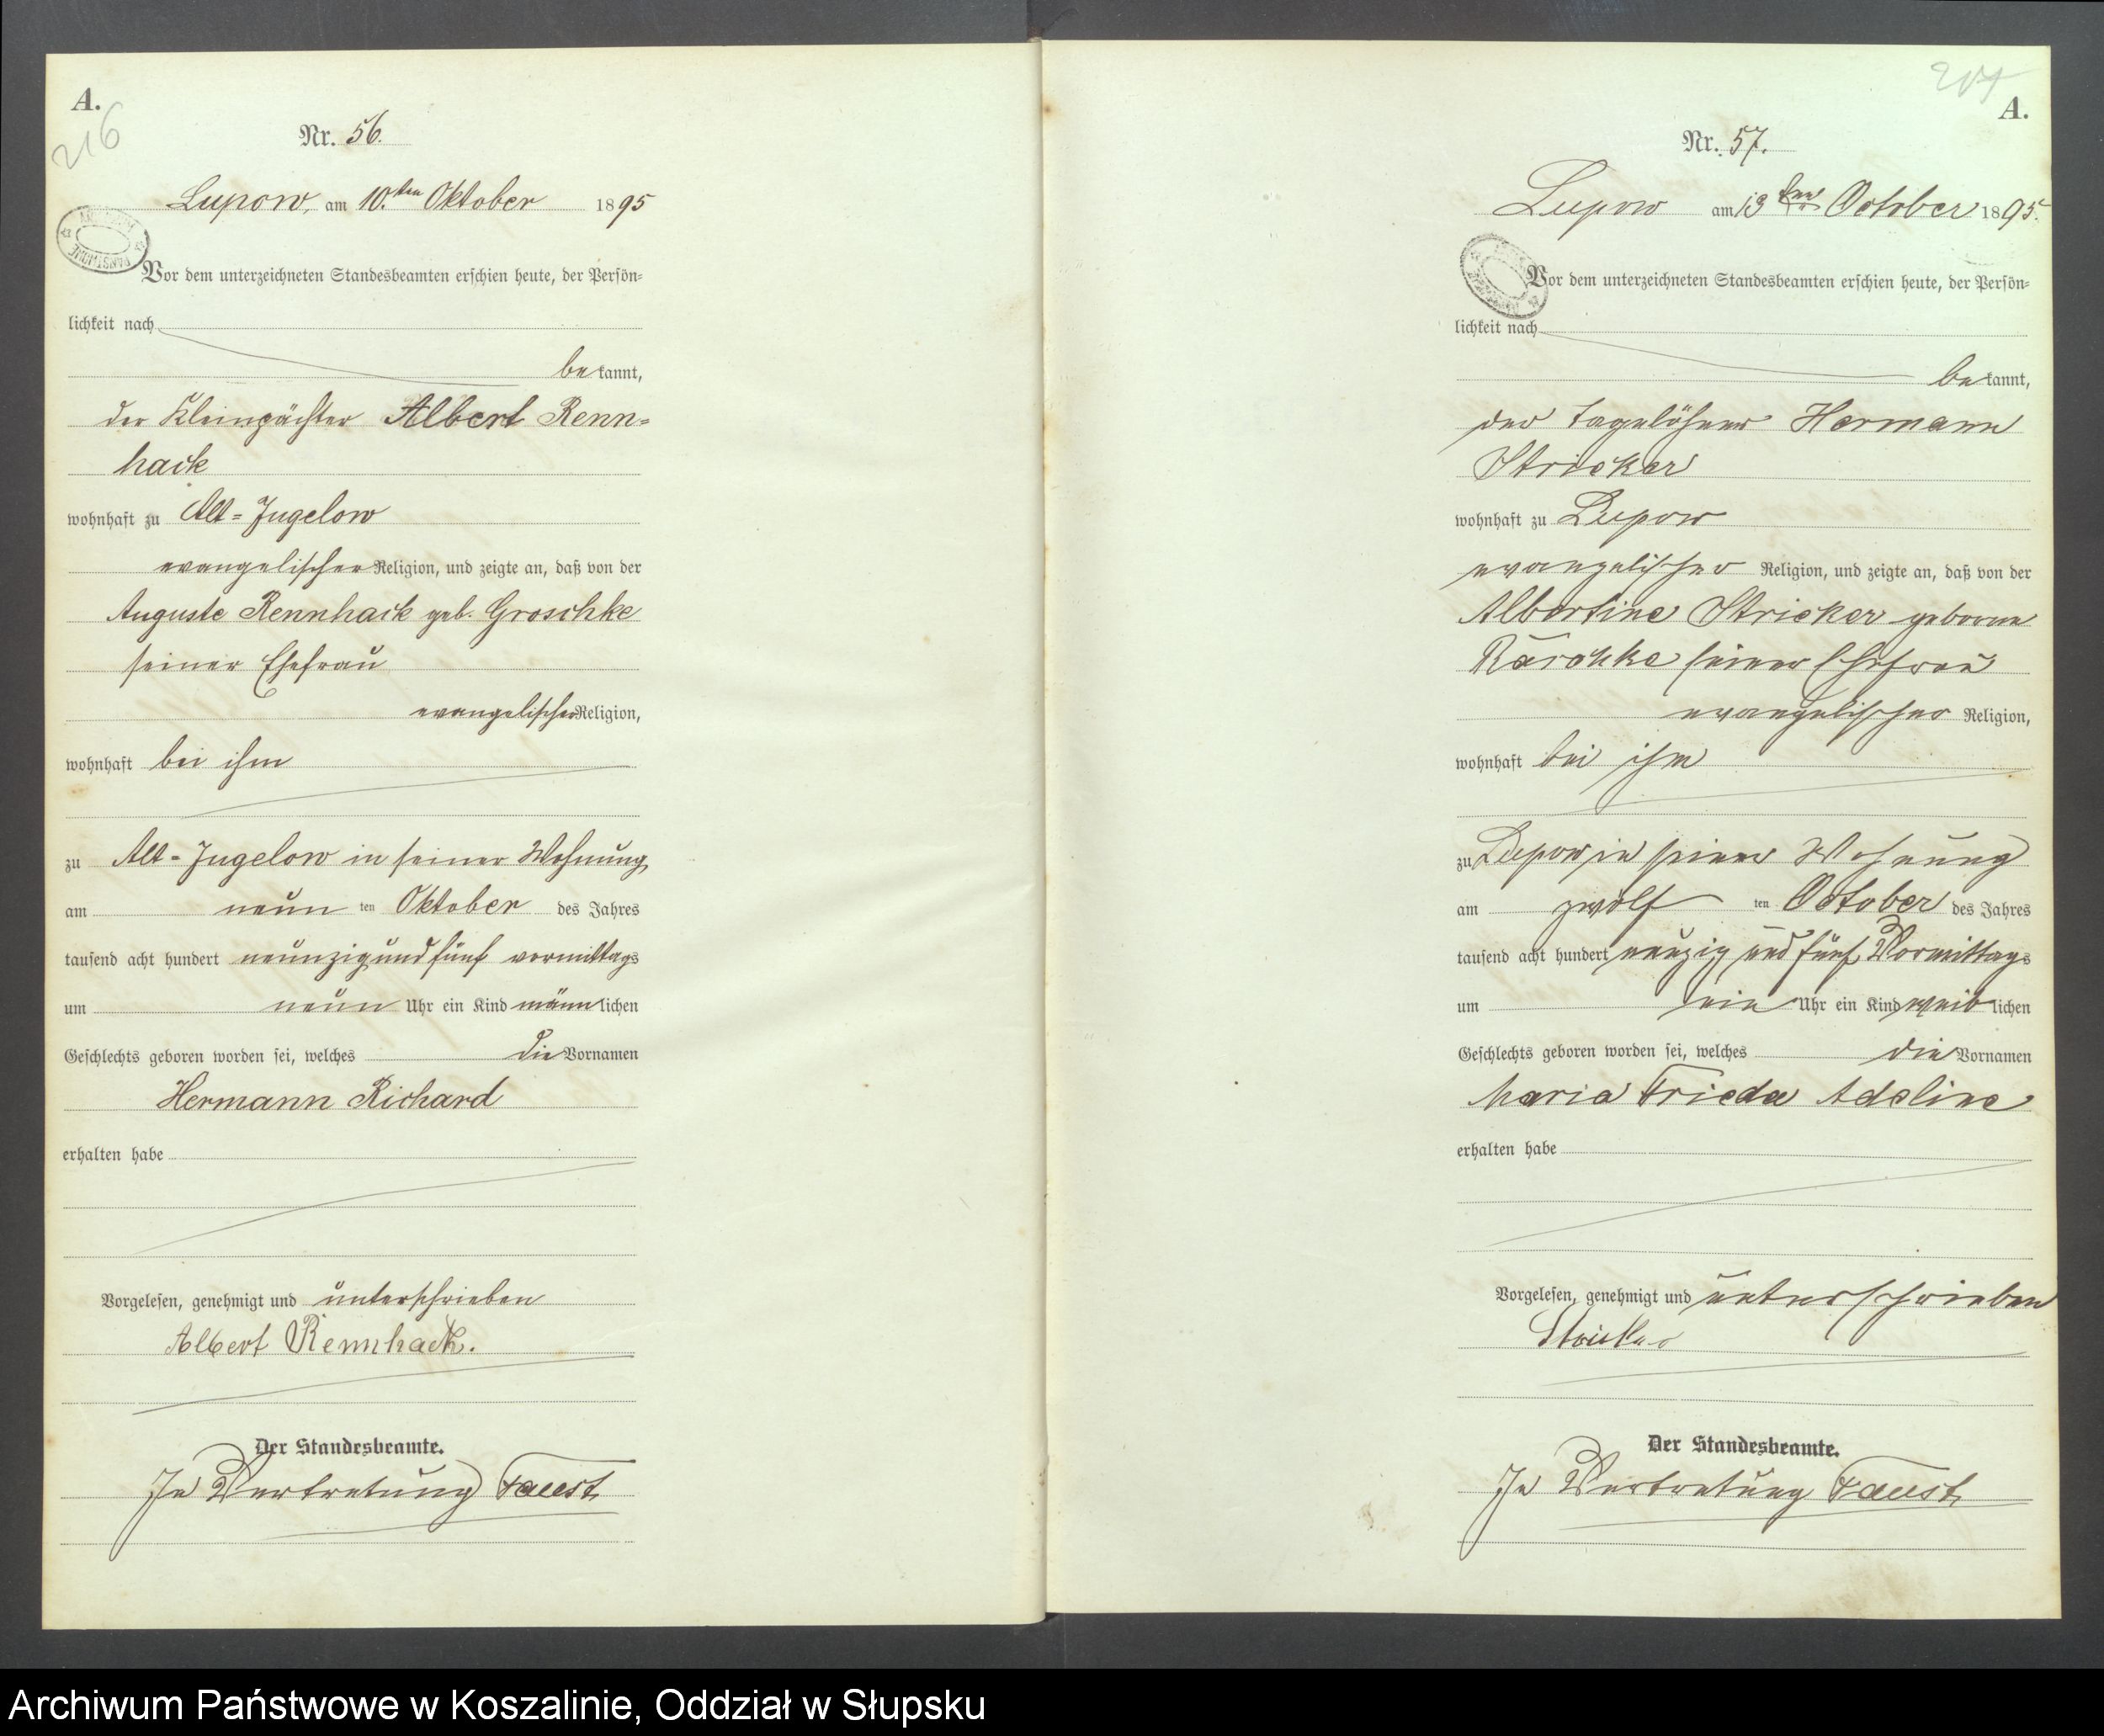 A.
216
Nr. 56.
Lupow, am 10.ten Oktober 1895
Vor dem unterzeichneten Standesbeamten erschien heute, der Persön=
lichkeit nach
bekannt,
der Kleinpächter Albert Renn=
hack
wohnhaft zu Alt=Jugelow
evangelischer Religion, und zeigte an, daß von der
Auguste Rennhack geb. Groschke
seiner Ehefrau
evangelischer Religion,
wohnhaft bei ihm
zu Alt=Jugelow in seiner Wohnung
am neun ten Oktober des Jahres
tausend acht hundert neunzig und fünf vormittags
um neun Uhr ein Kind männlichen
Geschlechts geboren worden sei, welches die Vornamen
Hermann Richard
erhalten habe
Vorgelesen, genehmigt und unterschrieben
Albert Rennhack.
Der Standesbeamte.
In Vertretung Faust
A.
Nr. 57.
Lupow am 13ten October 1895.
Vor dem unterzeichneten Standesbeamten erschien heute, der Persön=
lichkeit nach
bekannt,
der Tagelöhner Hermann
Stricker
wohnhaft zu Lupow
evangelischer Religion, und zeigte an, daß von der
Albertine Stricker geborne
seiner Ehefrau
evangelischer Religion,
wohnhaft bei ihm
zu Lupow in seiner Wohnung
am zwölf ten October des Jahres
tausend acht hundert neunzig und fünf Vormittags
um ein Uhr ein Kind weiblichen
Geschlechts geboren worden sei, welches die Vornamen
Maria Frieda Adeline
erhalten habe
Vorgelesen, genehmigt und unterschrieben
Stricker
Der Standesbeamte.
In Vertretung Faust
Archiwum Państwowe w Koszalinie, Oddział w Słupsku